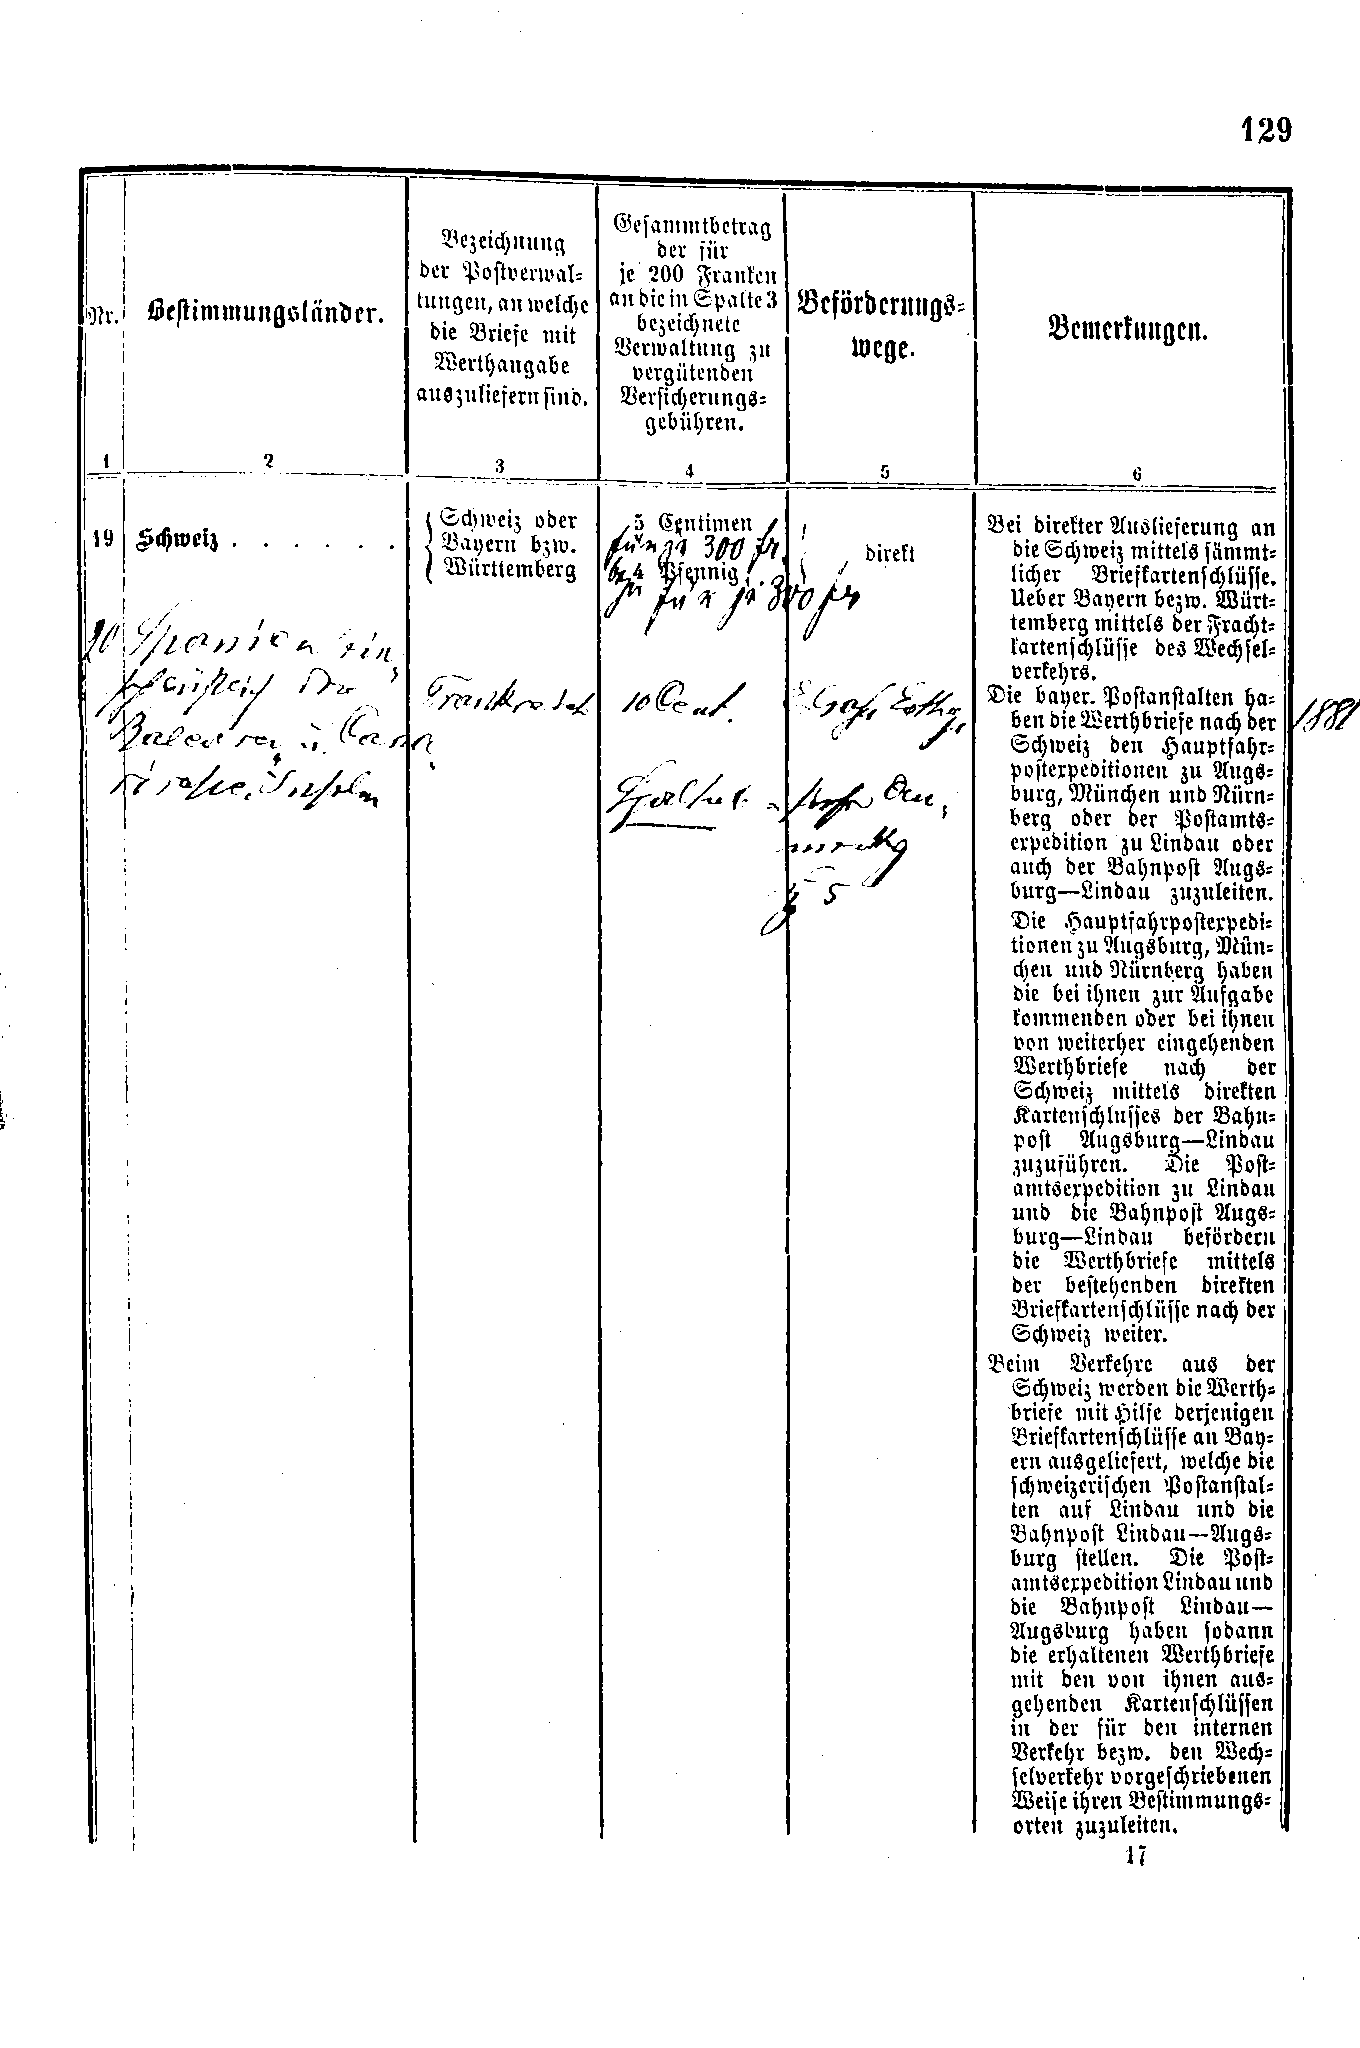 129
Nr.
Bestimmungsländer.
Bezeichnung
der Postverwal-
tungen, an welche
die Briefe mit
Werthangabe
auszuliefern sind.
Gesammtbetrag
der für
je 200 Franken
an die in Spalte 3
bezeichnete
Verwaltung zu
vergütenden
Versicherungs-
gebühren.
Beförderungs-
wege.
Bemerkungen.
1
2
3
4
5
6
19
Schweiz . . . . . .
Schweiz oder
Bayern bzw.
Württemberg
5 Centimen
für je 300 fr.
bzw. 4 Pfennig
für je 300 fr
direkt
20 Spanien ein-
schließlich der
Balearen u. Cana-
rischen Inseln
Frankreich
10 Cent.
Elsaß Lothg.
siehe An-
merkg
5
Bei direkter Auslieferung an
die Schweiz mittels sämmt-
licher Briefkartenschlüsse.
Ueber Bayern bezw. Würt-
temberg mittels der Fracht-
kartenschlüsse des Wechsel-
verkehrs.
Die bayer. Postanstalten ha-
ben die Werthbriefe nach der
1881
Schweiz den Hauptfahr-
postexpeditionen zu Augs-
burg, München und Nürn-
berg oder der Postamts-
expedition zu Lindau oder
auch der Bahnpost Augs-
burg—Lindau zuzuleiten.
Die Hauptfahrpostexpedi-
tionen zu Augsburg, Mün-
chen und Nürnberg haben
die bei ihnen zur Aufgabe
kommenden oder bei ihnen
von weiterher eingehenden
Werthbriefe nach der
Schweiz mittels direkten
Kartenschlusses der Bahn-
post Augsburg—Lindau
zuzuführen. Die Post-
amtsexpedition zu Lindau
und die Bahnpost Augs-
burg—Lindau befördern
die Werthbriefe mittels
der bestehenden direkten
Briefkartenschlüsse nach der
Schweiz weiter.
Beim Verkehre aus der
Schweiz werden die Werth-
briefe mit Hilfe derjenigen
Briefkartenschlüsse an Bay-
ern ausgeliefert, welche die
schweizerischen Postanstal-
ten auf Lindau und die
Bahnpost Lindau—Augs-
burg stellen. Die Post-
amtsexpedition Lindau und
die Bahnpost Lindau—
Augsburg haben sodann
die erhaltenen Werthbriefe
mit den von ihnen aus-
gehenden Kartenschlüssen
in der für den internen
Verkehr bezw. den Wech-
selverkehr vorgeschriebenen
Weise ihren Bestimmungs-
orten zuzuleiten.
17